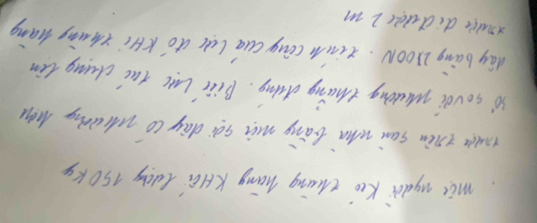 . một người kéo thùng hàng khối lượng 150kg
trượt trên sàn nhà bằng một sợi dây có phương hợp
30° so với phương thẳng đứng. Biết lực tác dụng lên
dây bằng 2100N. tính công của lực đó khi thùng hàng
trượt đi được 2m